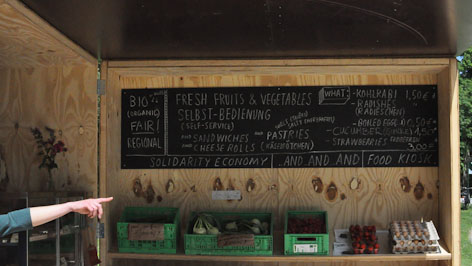 BIO
(ORGANIC)
FAIR!
REGIONAL
FRESH FRUITS & VEGETABLES
SELBST-BEDIENUNG
(SELF-SERVICE)
AND SANDWICHES
AND CHEESE ROLLS
AND PASTRIES
WHAT:
- KOHLRABI 1,50€
- RADISHES
(RADIESCHEN)
- BOILED EGGS
- CUCUMBER 1,50
- STRAWBERRIES
3,00€
SOLIDARITY ECONOMY
...AND...AND...AND
FOOD KIOSK